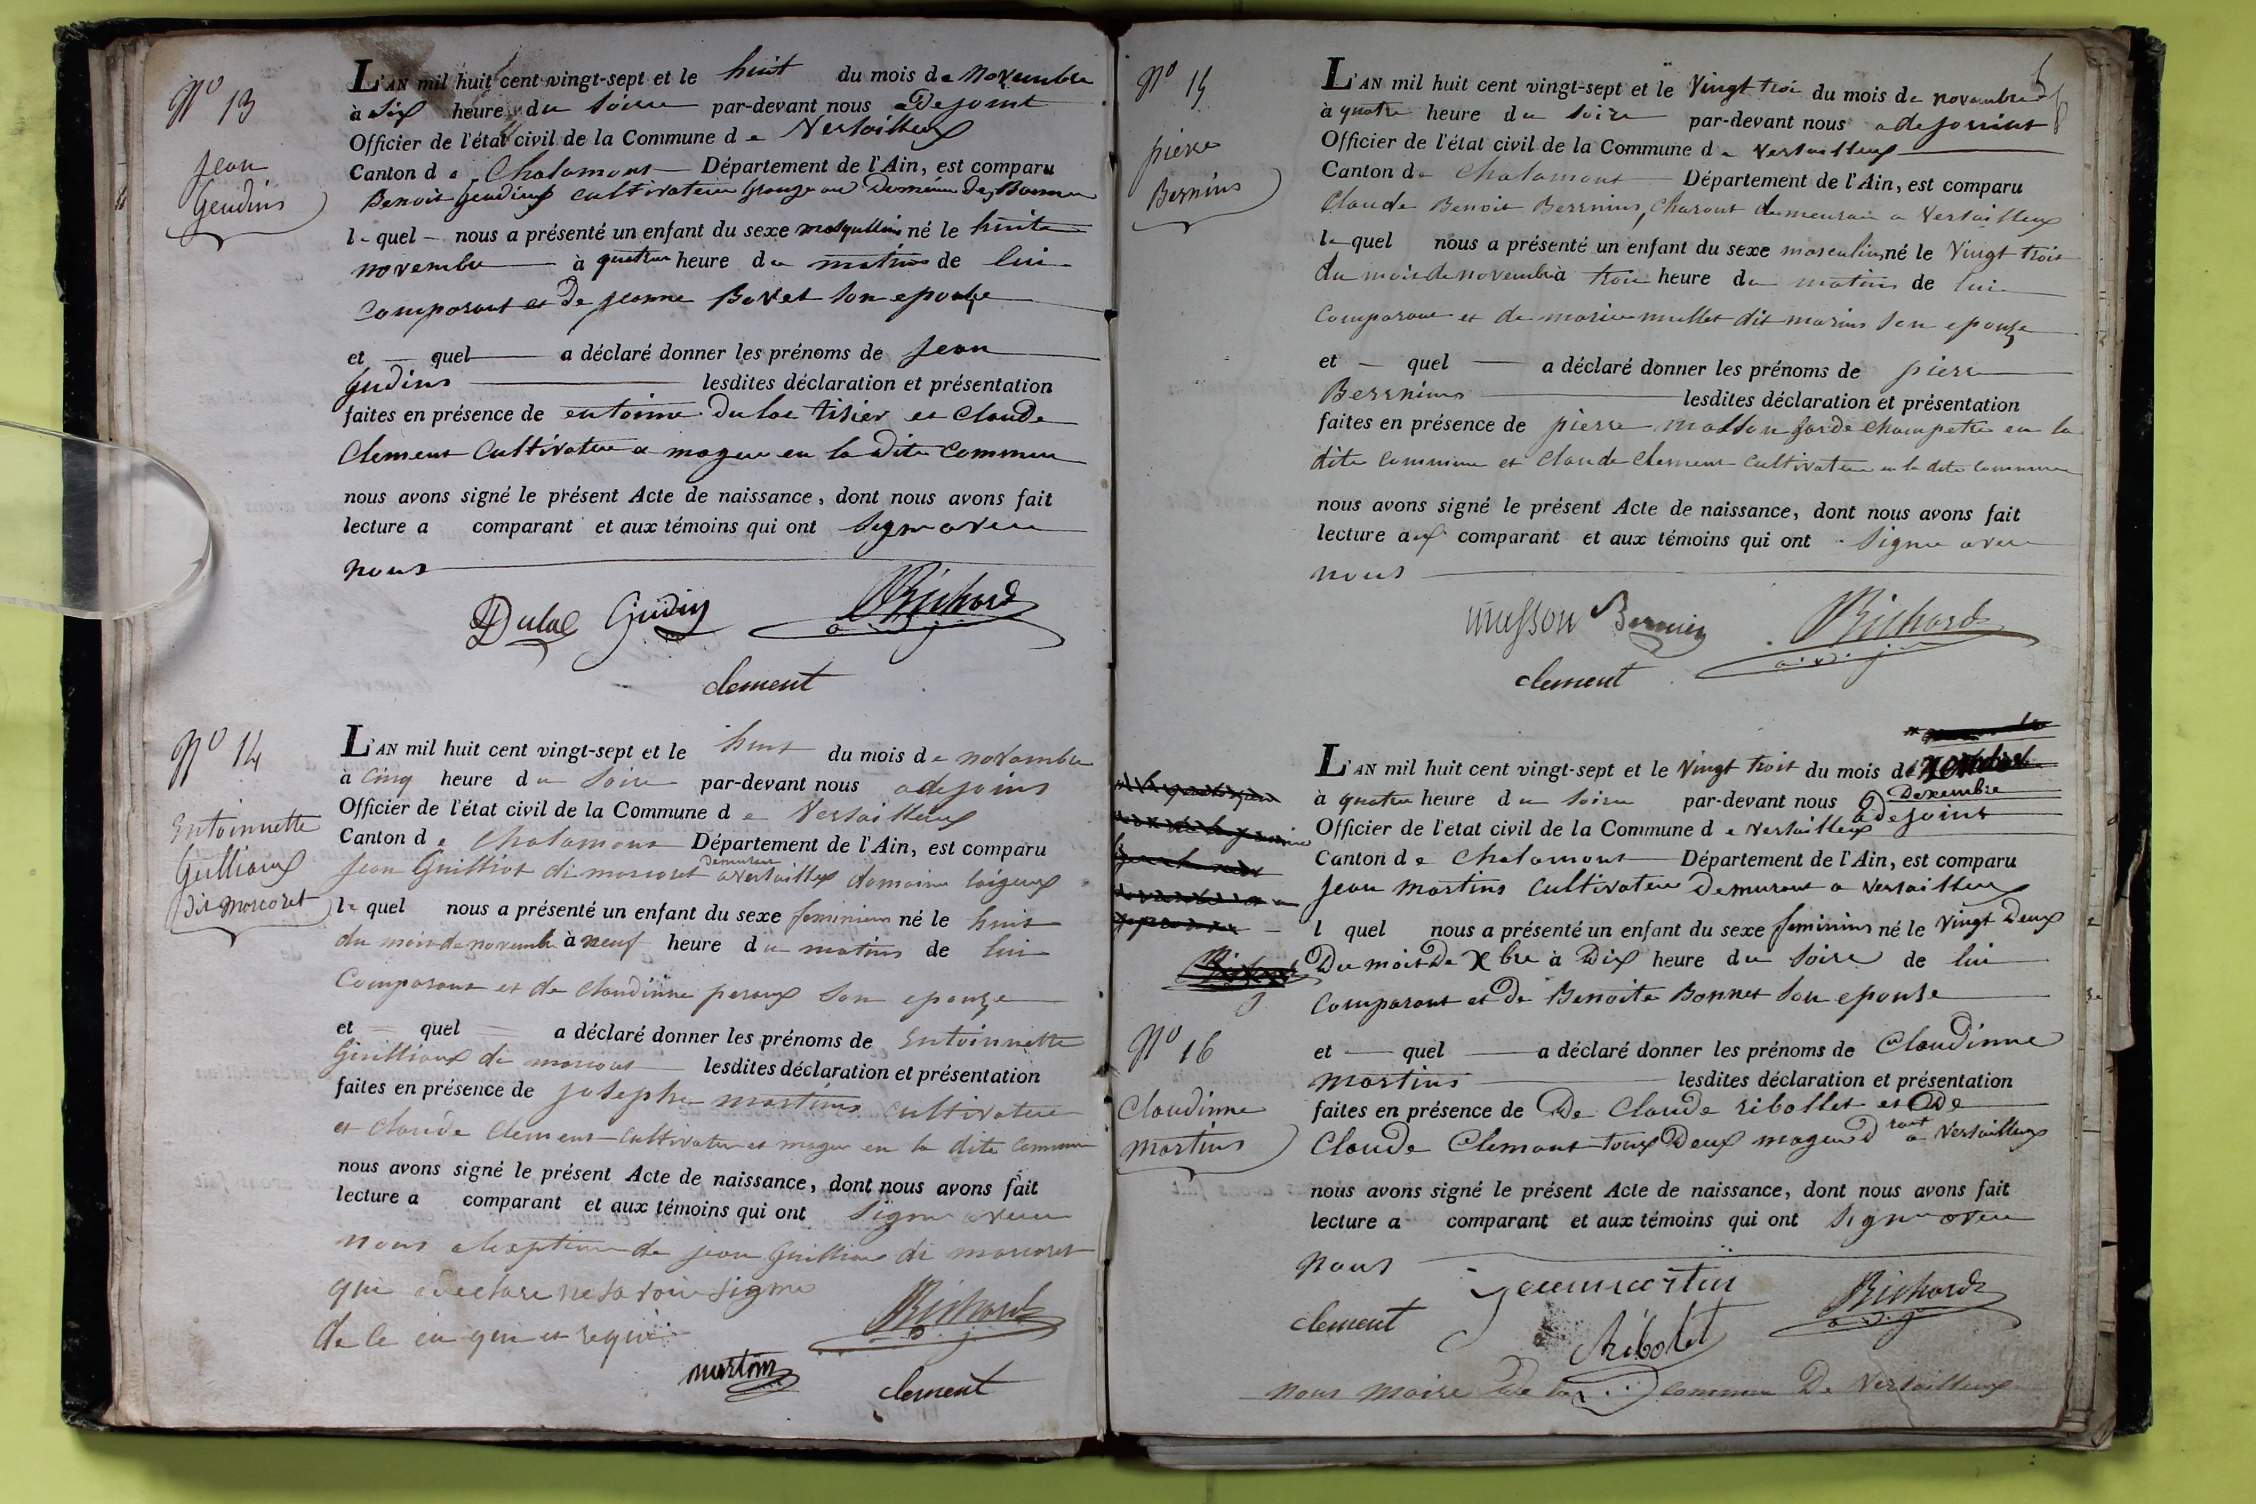 Nº 13
Jean
Gendins
L'AN mil huit cent vingt-sept et le huit du mois de novembre
à six heure du soire par-devant nous adejoint
Officier de l'état civil de la Commune de Versailleux
Canton de Chalamont Département de l'Ain, est comparu
Benoit Gendins cultivateur
lequel nous a présenté un enfant du sexe né le huite
novembre à quatre heure du matins de lui
comparant et de jeanne Bovet son epouse
et quel a déclaré donner les prénoms de jean
Gudins lesdites déclaration et présentation
faites en présence de entoinne Dulac tisier et Claude
Clement Cultivateur a mageur en la dite commun
nous avons signé le présent Acte de naissance, dont nous avons fait
lecture a comparant et aux témoins qui ont signe avec
nous
Dulac Gudin Richard
a.d.j.
clement
Nº 14
Entoinnette
Guillioux
dit morcoret
L'AN mil huit cent vingt-sept et le huit du mois de novembre
à cinq heure du soire par-devant nous adejoins
Officier de l'état civil de la Commune de Versailleux
Canton de Chalamont Département de l'Ain, est comparu
Jean Guilliot di morcoret demeurant a Versailleux domaine
lequel nous a présenté un enfant du sexe feminins né le huit
du mois de novembre à neuf heure du matins de lui
comparant et de Claudinne peroux son epouze
et quel a déclaré donner les prénoms de Entoinnette
Guillioux di lesdites déclaration et présentation
faites en présence de josephe martins cultivateur
et Claude Clement cultivateur et mageur en la dite commun
nous avons signé le présent Acte de naissance, dont nous avons fait
lecture a comparant et aux témoins qui ont signe avec
nous de jean Guillioux di morcoret
qui a declare ne savoir signe
de ce en qui et requi
Richard
a.d.j.
martin
clement
Nº 15
pierre
Bernins
L'AN mil huit cent vingt-sept et le Vingt troi du mois de novembre
à quatre heure du soire par-devant nous adejoint
Officier de l'état civil de la Commune de Versailleux
Canton de Chalamont Département de l'Ain, est comparu
Claude Benoit Bernins, Charont demeurant a Versailleux
lequel nous a présenté un enfant du sexe masculins né le Vingt trois
du mois de novembre à troi heure du matins de lui
comparant et de marie mullet dit marins son epouze
et quel a déclaré donner les prénoms de pierre
Bernins lesdites déclaration et présentation
faites en présence de pierre masson garde champetre en la
dite commune et Claude Clement cultivateur en la dite commune
nous avons signé le présent Acte de naissance, dont nous avons fait
lecture aux comparant et aux témoins qui ont signe avec
nous
musson Bernin Richard
a.d.j.
clement
Nº 16
Claudinne
martins
L'AN mil huit cent vingt-sept et le Vingt troit du mois de
Dexembre
à quatre heure du soire par-devant nous adejoint
Officier de l'etat civil de la Commune de Versailleux
Canton de Chalamont Département de l'Ain, est comparu
Jean martins cultivateur Demurant a Versailleux
l quel nous a présenté un enfant du sexe feminins né le Vingt Deux
Du mois De Xbre à Dix heure du soire de lui
comparant et De Benoite Bonnet son epouse
et quel a déclaré donner les prénoms de Claudinne
martins lesdites déclaration et présentation
faites en présence de De Claude ribollet et De
Claude Clemont toux Deux mageur a Versailleux
nous avons signé le présent Acte de naissance, dont nous avons fait
lecture a comparant et aux témoins qui ont signe avec
nous
jean martin
clement Richard
a.d.j.
Ribolet
nous maire de la commune De Versailleux